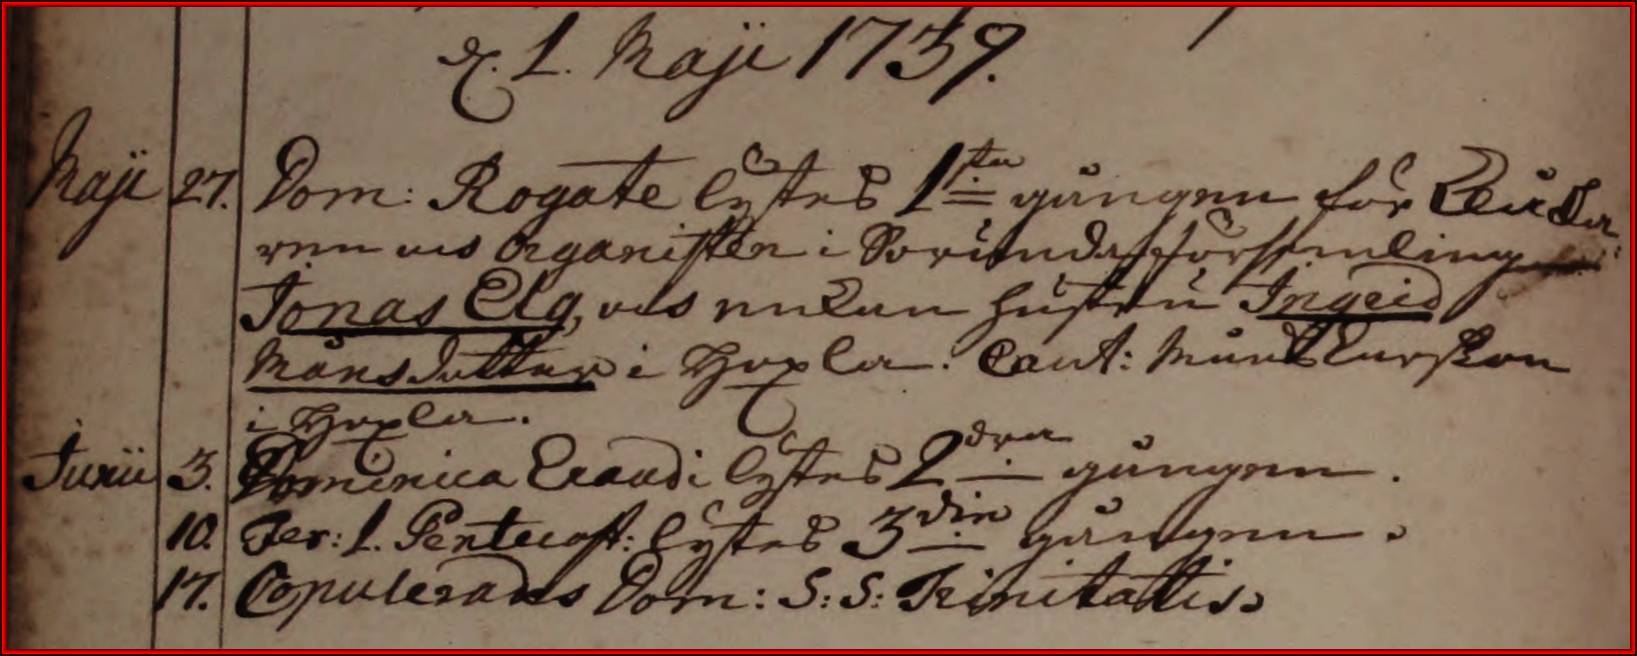 d. 1. Maji 1739.
Maji 27. Dom: Rogate lystes 1sta gången för
och Organisten i Sorunda församling
Jonas Elg, och hustru Ingrid
Månsdotter i Hoxla. Caut: Måns Larsson
i Hoxla.
Junii 3. Dominica Exaudi lystes 2dra gången.
10. Fer: 1. Pentecost: lystes 3die gången.
17. Copulerades Dom: S:S: Trinitatis.